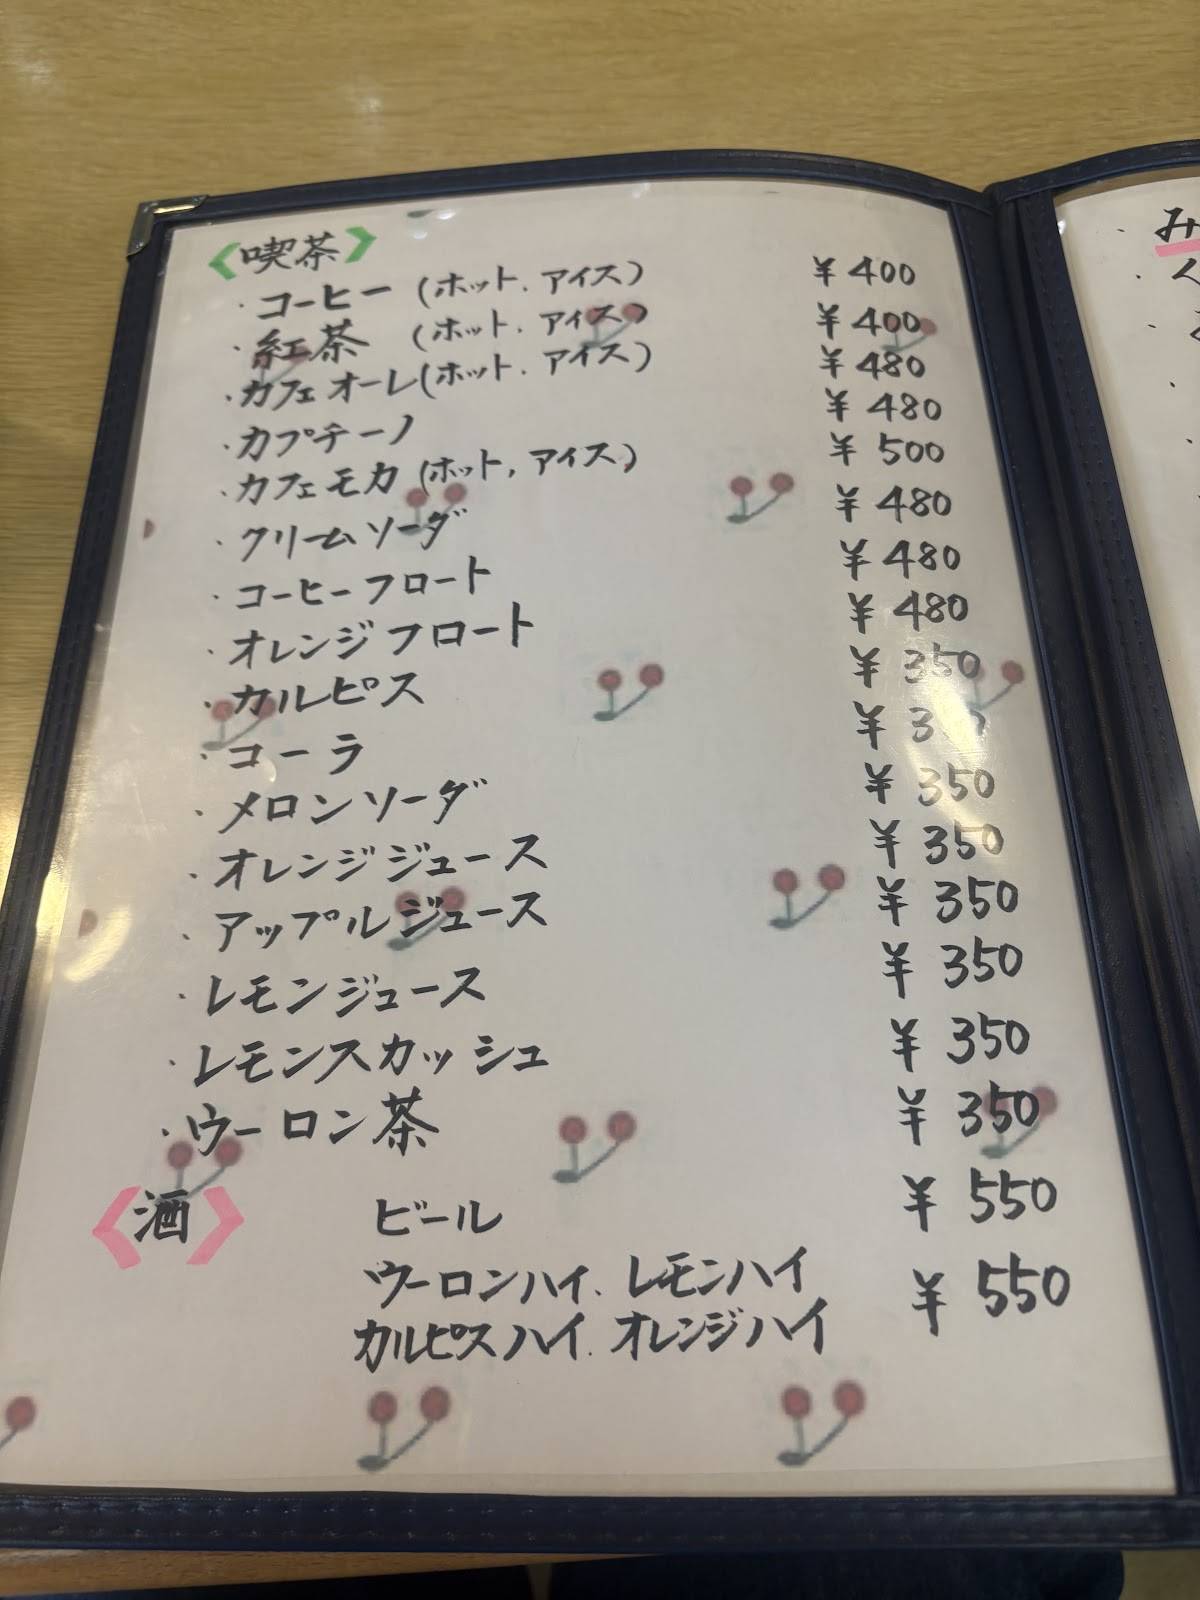 〈喫茶〉
・コーヒー (ホット、アイス) ¥400
・紅茶 (ホット、アイス) ¥400
・カフェオーレ(ホット、アイス) ¥480
・カプチーノ ¥480
・カフェモカ (ホット, アイス) ¥500
・クリームソーダ ¥480
・コーヒーフロート ¥480
・オレンジフロート ¥480
・カルピス ¥350
・コーラ ¥
・メロンソーダ ¥350
・オレンジジュース ¥350
・アップルジュース ¥350
・レモンジュース ¥350
・レモンスカッシュ ¥350
・ウーロン茶 ¥350
〈酒〉 ビール ¥550
ウーロンハイ、レモンハイ ¥550
カルピスハイ、オレンジハイ
み
く